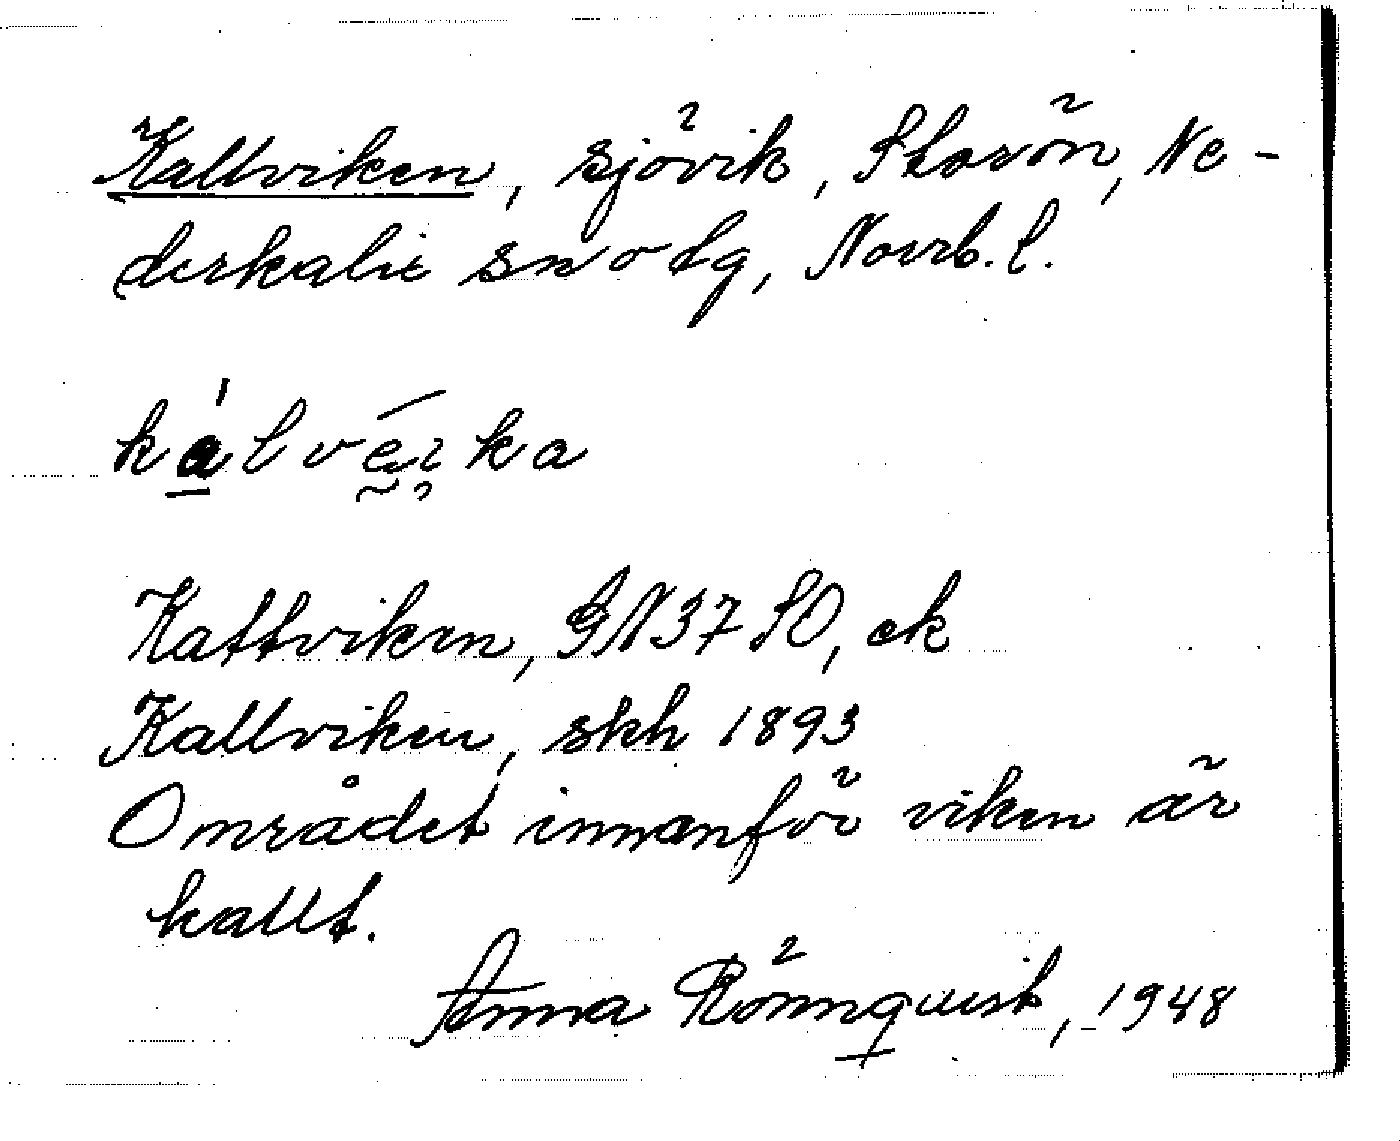 Kallviken, sjövik, Storön, Ne-
derkalix sn o tg, Norrb. l.
kalvéika
Kattviken, GN37SO, ek
Kallviken, skh 1893
Området innanför viken är
kallt.
Anna Rönnquist, 1948